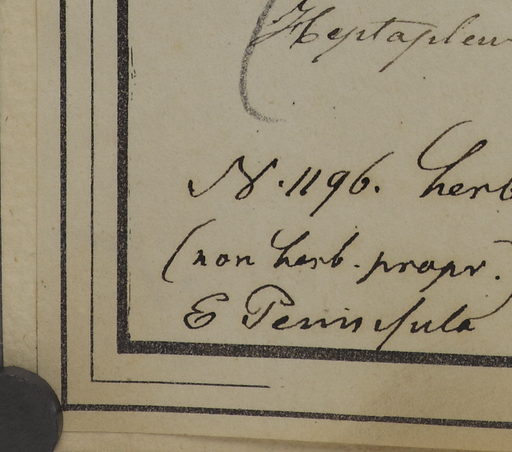 (Heptapleur
N. 1196. herb
(non herb. propr.)
E Peninsula